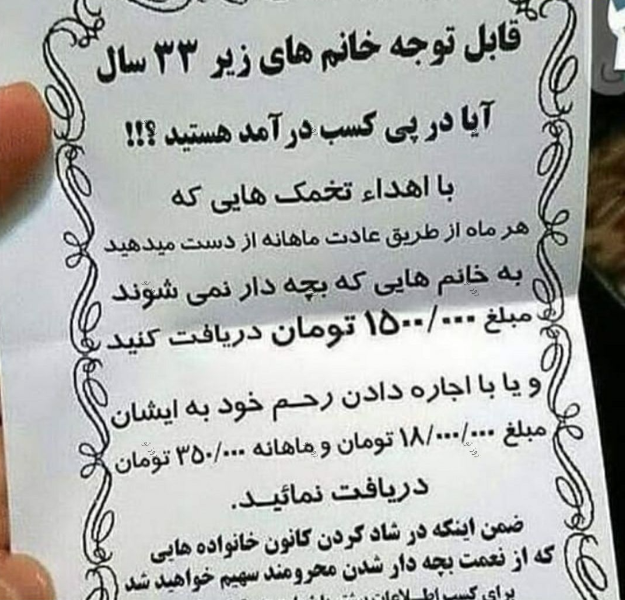 قابل توجه خانم های زیر ۳۳ سال
آیا در پی کسب درآمد هستید ؟!!!
با اهداء تخمک هایی که
هر ماه از طریق عادت ماهانه از دست میدهید
به خانم هایی که بچه دار نمی شوند
مبلغ ۱۵۰۰/۰۰۰ تومان دریافت کنید
و یا با اجاره دادن رحم خود به ایشان
مبلغ ۱۸/۰۰۰/۰۰۰ تومان و ماهانه ۳۵۰/۰۰۰ تومان
دریافت نمائید.
ضمن اینکه در شاد کردن کانون خانواده هایی
که از نعمت بچه دار شدن محرومند سهیم خواهید شد
برای کسب اطلاعات